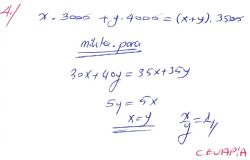 A./ x . 3000 + y . 4000 = (x+y) . 3500
30x + 40y = 35x + 35y
5y = 5x
x = y
x/y = 1//
CEVAP:A